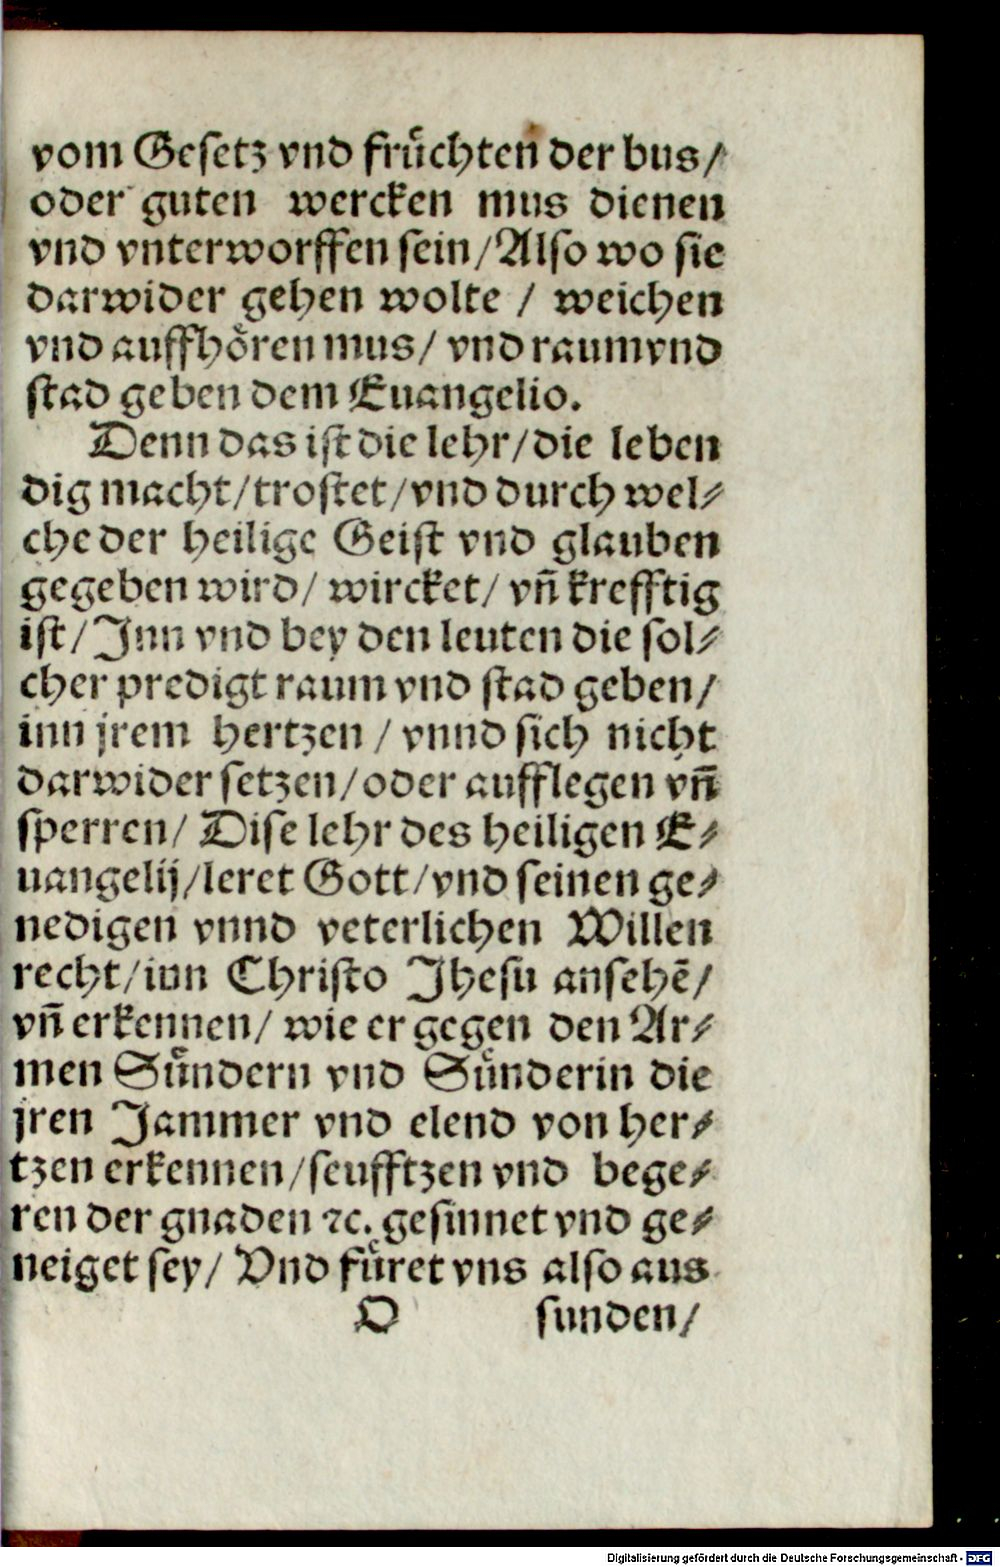 vom Gesetz vnd fruͤchten der bus/
oder guten wercken mus dienen
vnd vnterworffen sein/Also wo sie
darwider gehen wolte / weichen
vnd auffhoͤren mus/ vnd raumvnd
stad geben dem Euangelio.
Denn das ist die lehr/die leben
dig macht/trostet/vnd durch wel⸗
che der heilige Geist vnd glauben
gegeben wird/ wircket/ vñ krefftig
ist/Jnn vnd bey den leuten die sol⸗
cher predigt raum vnd stad geben/
inn jrem hertzen / vnnd sich nicht
darwider setzen/oder aufflegen vñ
sperren/ Dise lehr des heiligen E⸗
uangelij/leret Gott/vnd seinen ge⸗
nedigen vnnd veterlichen Willen
recht/inn Christo Jhesu ansehẽ/
vñ erkennen/ wie er gegen den Ar⸗
men Suͤndern vnd Suͤnderin die
jren Jammer vnd elend von her⸗
tzen erkennen/seufftzen vnd bege⸗
ren der gnaden ꝛc. gesinnet vnd ge⸗
neiget sey/ Vnd fuͤret vns also aus
O sunden/
Digitalisierung gefördert durch die Deutsche Forschungsgemeinschaft - DFG